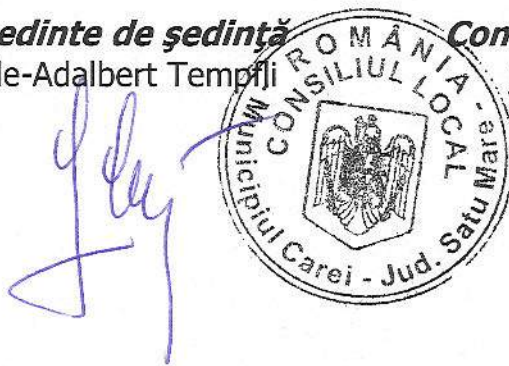 edinte de şedinţă
Con
le-Adalbert Tempfli
ROMÂNIA -
CONSILIUL LOCAL
Municipiul Carei - Jud. Satu Mare